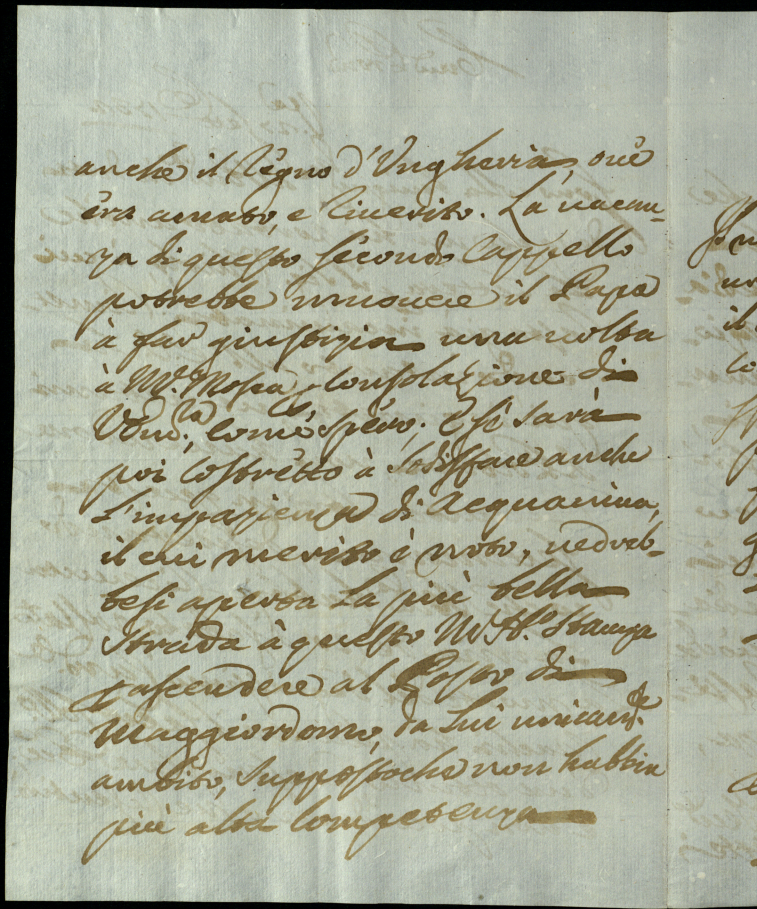 anche il Regno d'Ungheria, ov'è
era amato, e riverito. La vacan-
za di questo secondo Cappello
potrebbe muovere il Papa
à far giustizia una volta
à M.r Mosca p consolazione di
come spero; E se sarà
poi costretto à sodisfare anche
l'impazienza di Acquaviva,
il cui merito è noto, vedreb-
besi aperta la più bella
strada à questo M. Stampa
p ascendere al Posto di
Maggiordomo, da lui unicam.te
ambito, suppostoche non habbia
più alta competenza